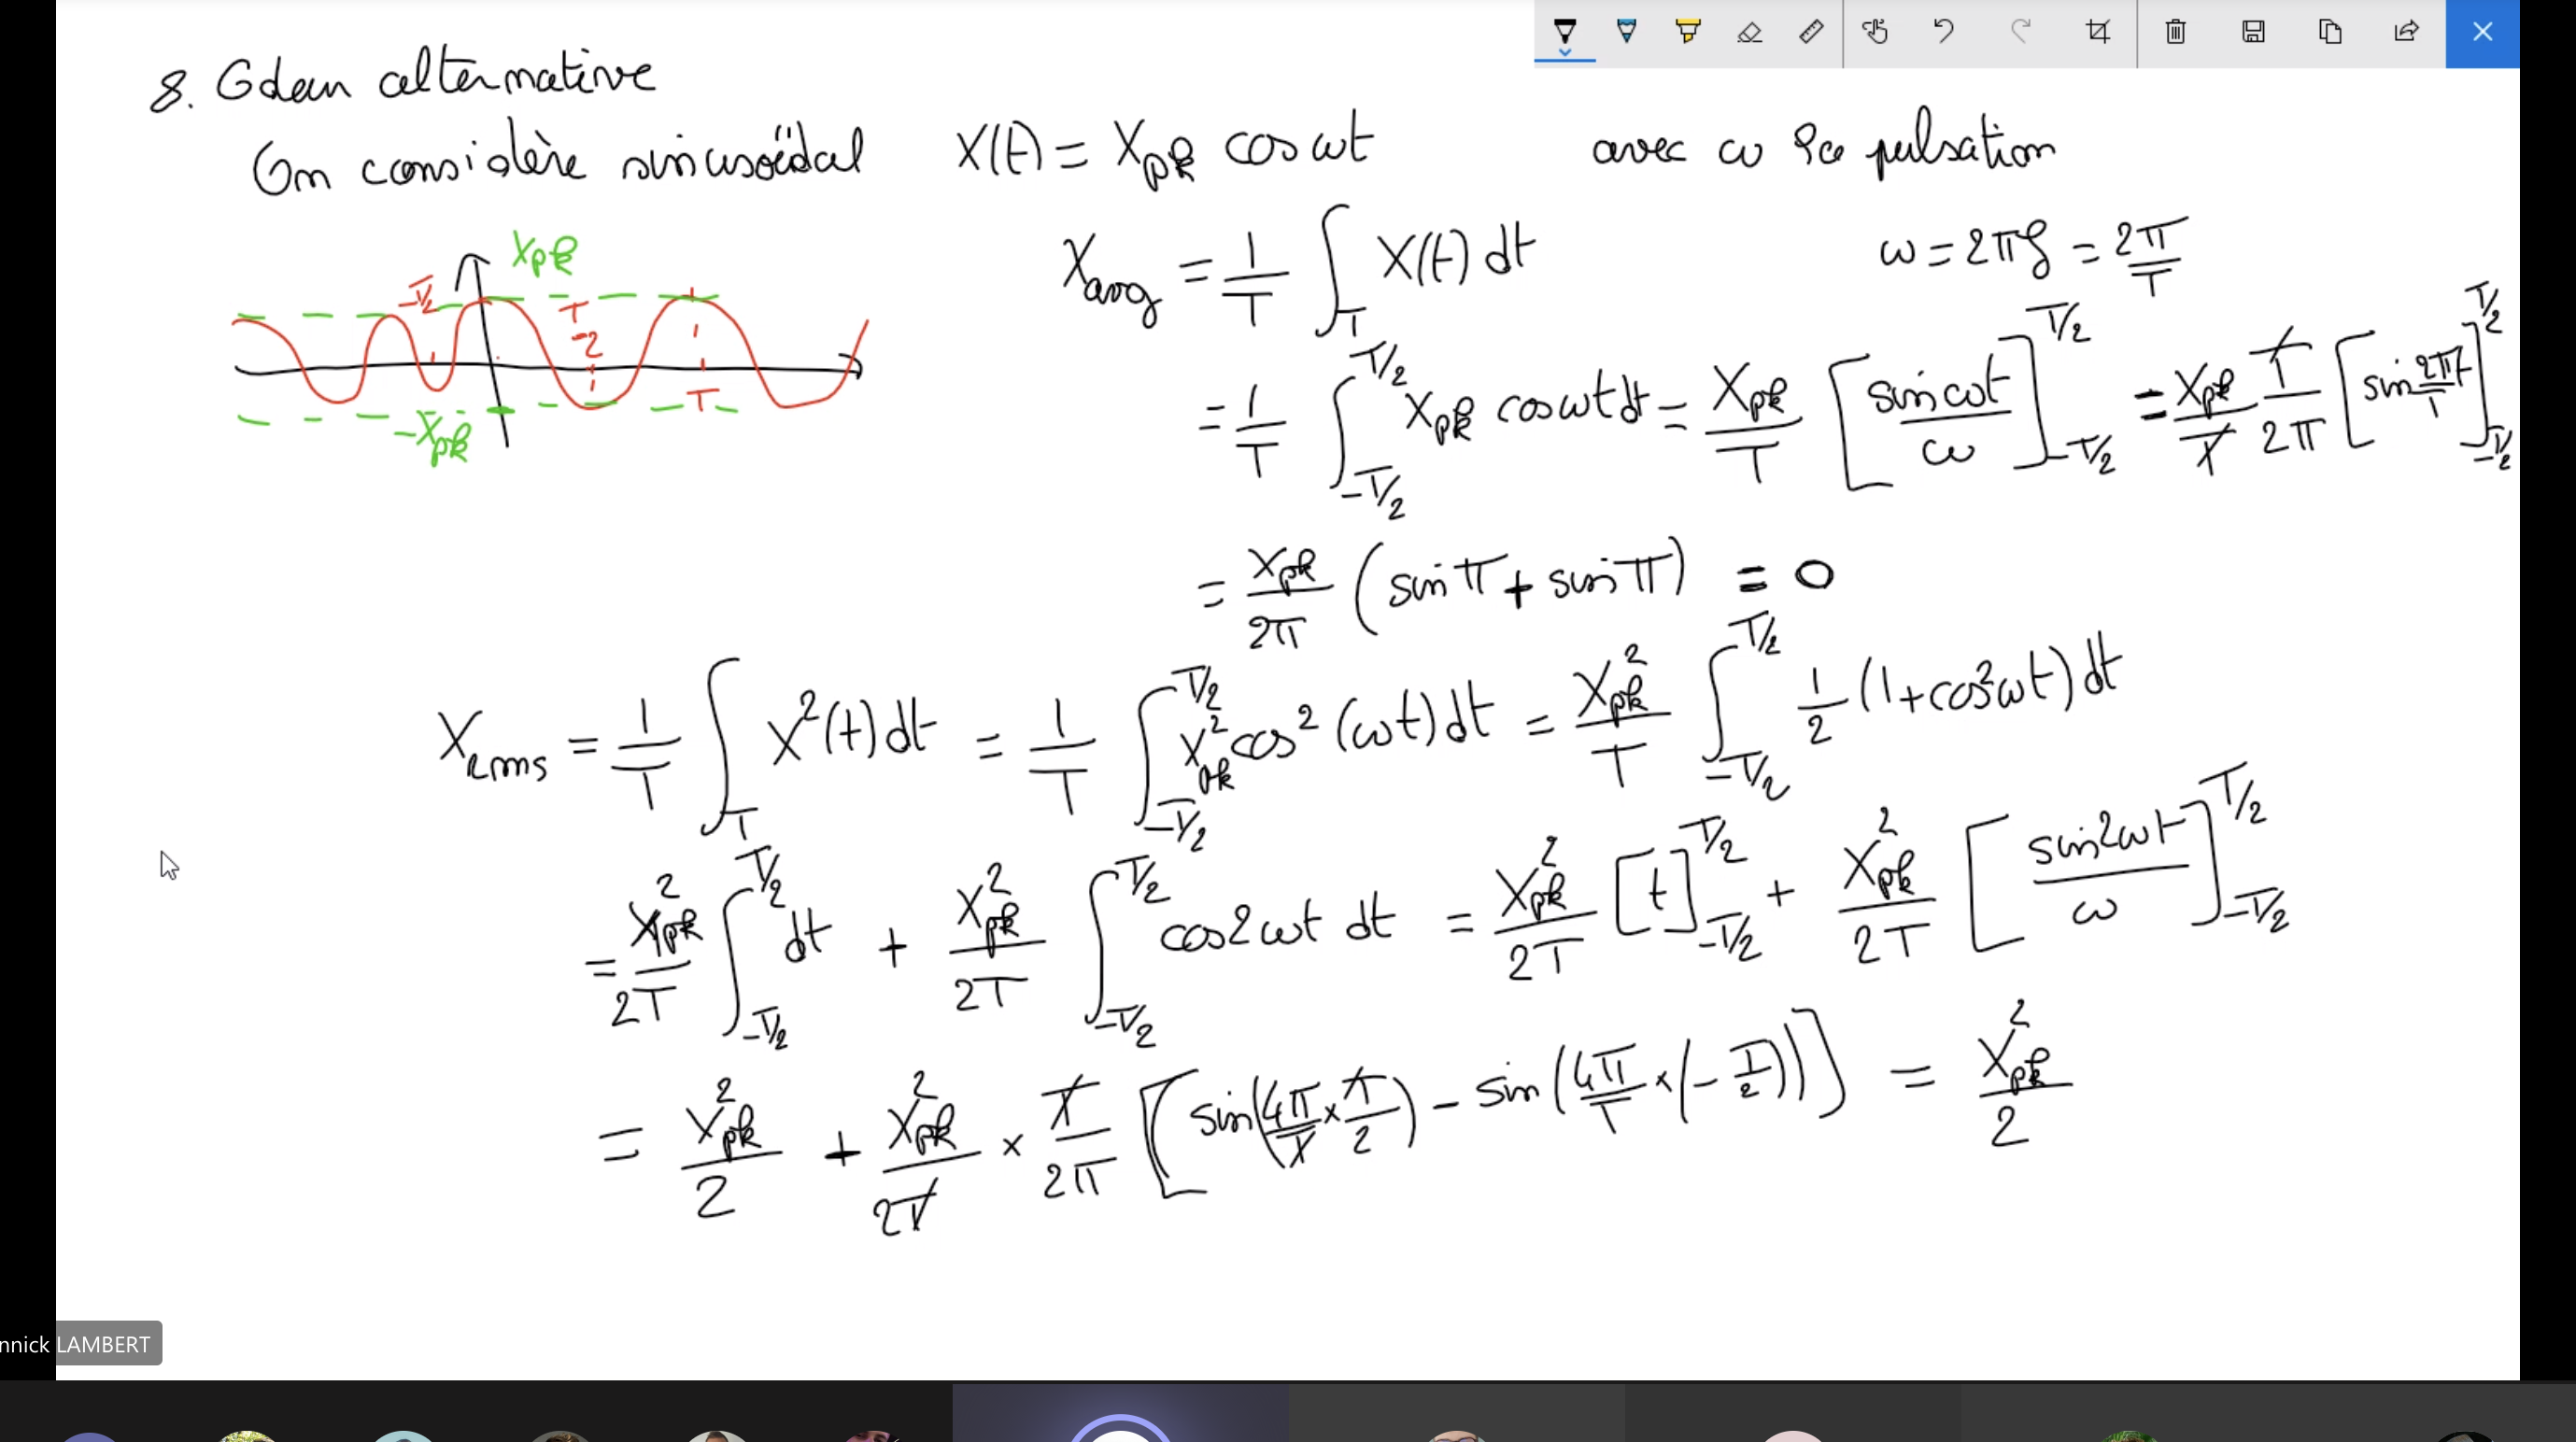 8. Gdeur alternative
On considère sinusoïdal X(t) = X_pk cos ωt avec ω la pulsation
X_pk
-T/2 T/2
T
-X_pk
X_avg = 1/T ∫_T X(t) dt ω = 2πf = 2π/T
= 1/T ∫_{-T/2}^{T/2} X_pk cos ωt dt = X_pk/T [sin ωt/ω]_{-T/2}^{T/2} = X_pk/T T/2π [sin 2πt/T]_{-T/2}^{T/2}
= X_pk/2π (sin π + sin π) = 0
X_rms = 1/T ∫_T X²(t) dt = 1/T ∫_{-T/2}^{T/2} X²_pk cos² (ωt) dt = X²_pk/T ∫_{-T/2}^{T/2} 1/2 (1 + cos 2ωt) dt
= X²_pk/2T ∫_{-T/2}^{T/2} dt + X²_pk/2T ∫_{-T/2}^{T/2} cos 2ωt dt = X²_pk/2T [t]_{-T/2}^{T/2} + X²_pk/2T [sin 2ωt/ω]_{-T/2}^{T/2}
= X²_pk/2 + X²_pk/2T × T/2π [sin(4π/T × T/2) - sin(4π/T × (-T/2))] = X²_pk/2
nnick LAMBERT